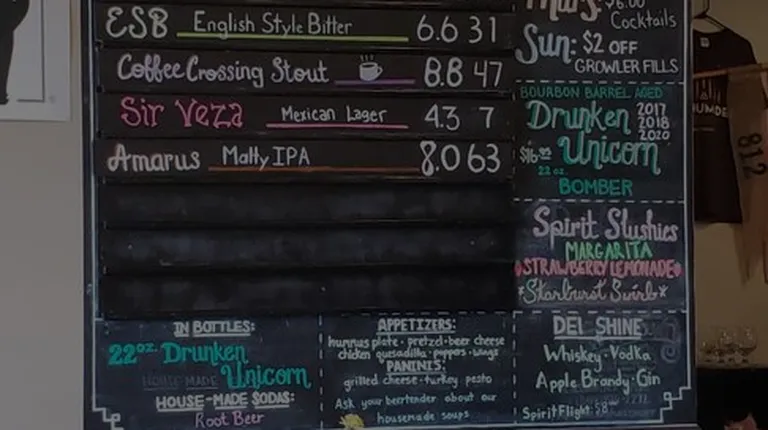 ESB English Style Bitter 6.6 31
Coffee Crossing Stout 8.8 47
Sir Veza Mexican Lager 4.3 7
Amarus Malty IPA 8.0 63
$6.00
Cocktails
Sun: $2 OFF
GROWLER FILLS
BOURBON BARREL AGED
Drunken 2017
2018
2020
Unicorn
22 oz.
BOMBER
Spirit Slushies
MARGARITA
STRAWBERRY LEMONADE
*Starburst Swirl*
IN BOTTLES:
22oz. Drunken
Unicorn
HOUSE MADE
HOUSE-MADE SODAS:
Root Beer
APPETIZERS:
hummus plate · pretzel · beer cheese
chicken quesadilla · poppers · wings
PANINIS:
grilled cheese · turkey pesto
Ask your beertender about our
housemade soups
SHINE
Whiskey · Vodka
Apple Brandy · Gin
Spirit Flight: $8
812